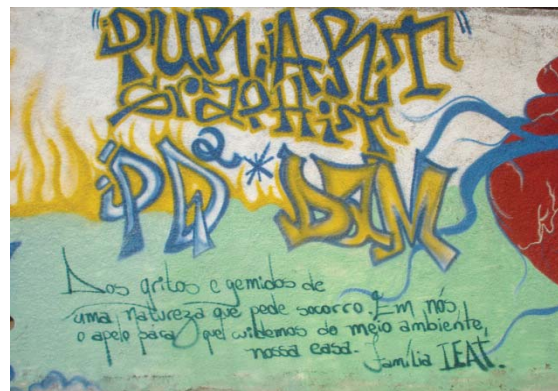 "PURiART"
GRAPHiT
DAM
Dos gritos e gemidos de
uma natureza que pede socorro. Em nós,
o apelo para que cuidemos do meio ambiente,
nossa casa. família IEAT.